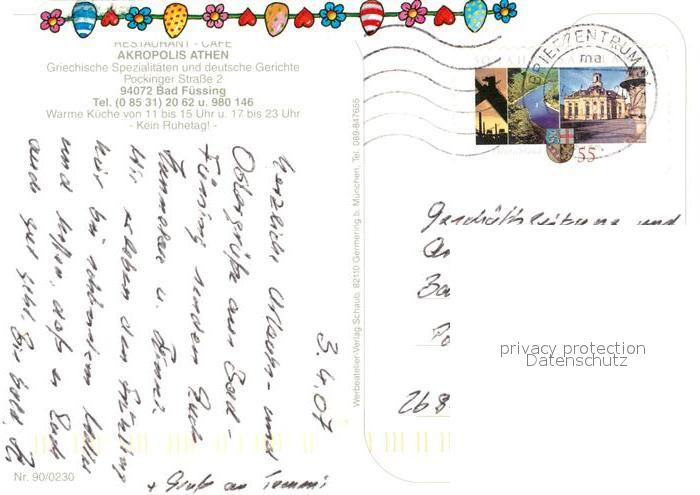 RESTAURANT - CAFÉ
AKROPOLIS ATHEN
Griechische Spezialitäten und deutsche Gerichte
Pockinger Straße 2
94072 Bad Füssing
Tel. (0 85 31) 20 62 u. 980 146
Warme Küche von 11 bis 15 Uhr u. 17 bis 23 Uhr
- Kein Ruhetag! -
Werbeatelier-Verlag-Schaub, 82110 Germering b. München, Tel. 089-847655
3.4.07
Herzliche Urlaubs- und
Ostergrüße aus Bad -
Füssing senden Euch
Wir erleben den Frühling
hier bei schönstem Wetter
und hoffen, daß es Euch
auch gut geht. Bis bald,
+ Gruß an
Nr. 90/0230
BRIEFZENTRUM
55
Geschäftsleitung und
268
privacy protection
Datenschutz